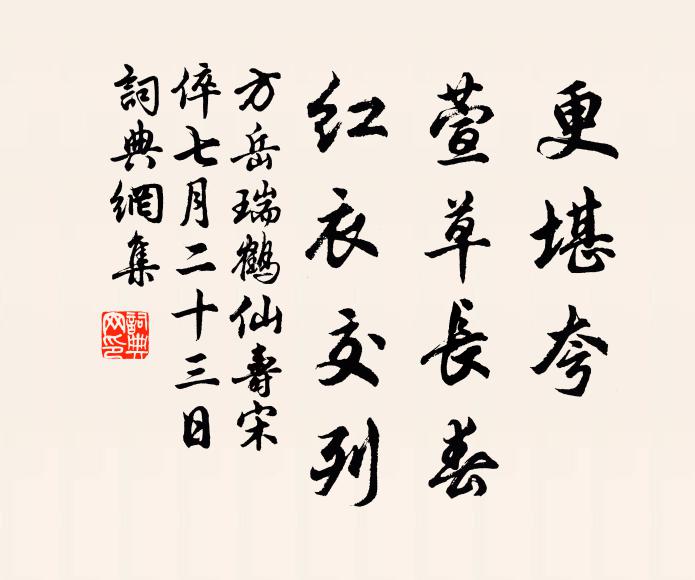 更堪夸
萱草長春
紅衣交列
方岳瑞鶴仙壽宋
倅七月二十三日
詞典網集
詞典
网印